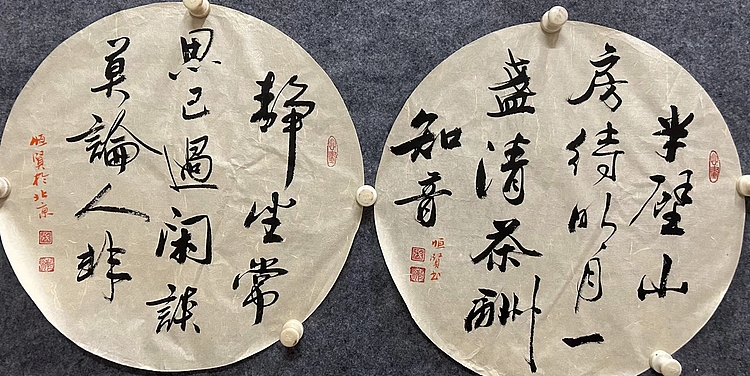 静坐常
思己過闲談
莫論人非
恒賢於北京
半壁山
房待明月一
盏清茶酬
知音
恒賢书